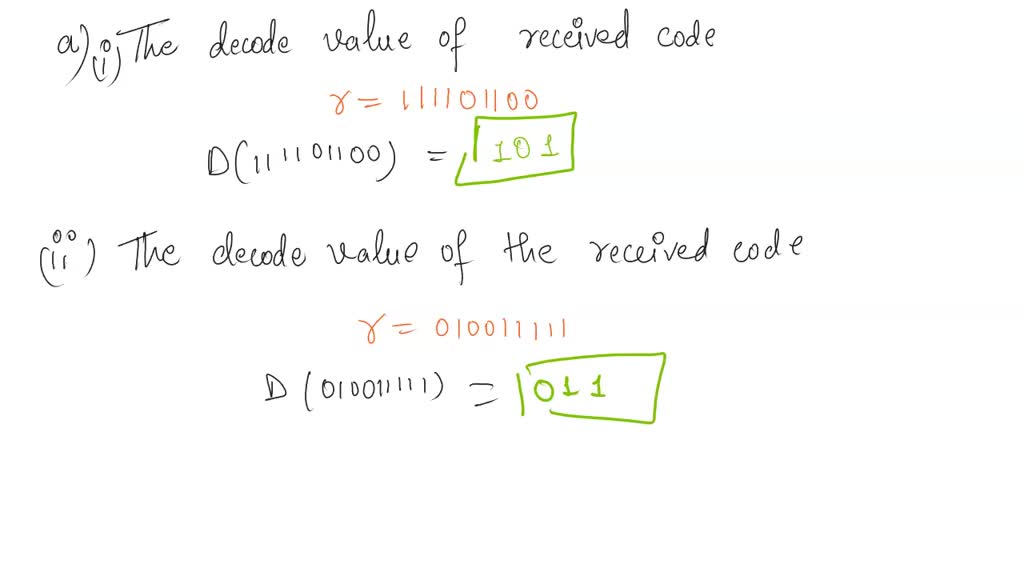 a) (i) The decode value of received code
r = 111101100
D(111101100) = 101
(ii) The decode value of the received code
r = 010011111
D(010011111) = 011